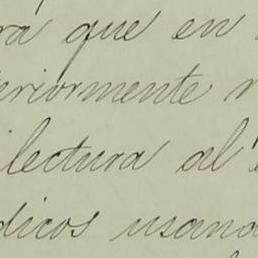 ra que en
eriormente
lectura al
dicos usand